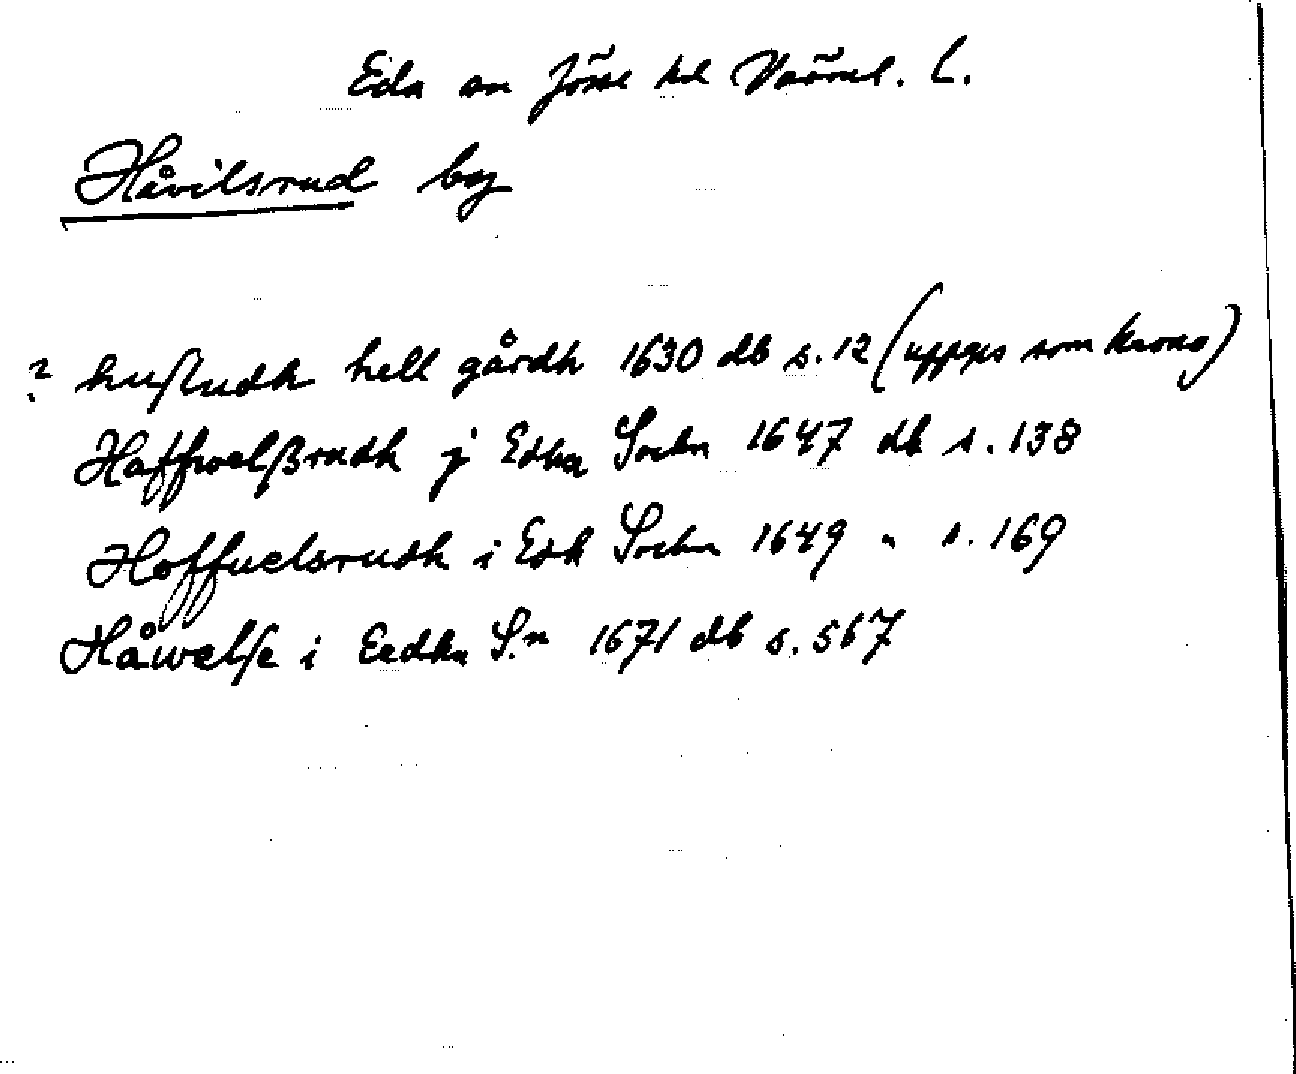 Eda sn Jösse hd Värml. L.
Håvilsrud by
? husludh hell gårdh 1630 db s. 12 (uppges som krono)
Haffwelßrudh j Edha Sockn 1647 db s. 138
Hoffuelsrudh i Edh Sockn 1649 " s. 169
Håwelse i Eedha S.n 1671 db s. 567